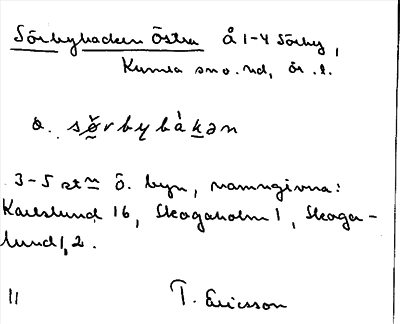 Sörbybacken Östra Å 1-4 Sörby,
Kumla sno. hd, ör. l.
a. sö̀rbybàkən
3-5 st Ö. byn, namngivna:
Karlslund 16, Skogaholm 1, Skoga-
lund 1, 2.
11 T. Ericsson